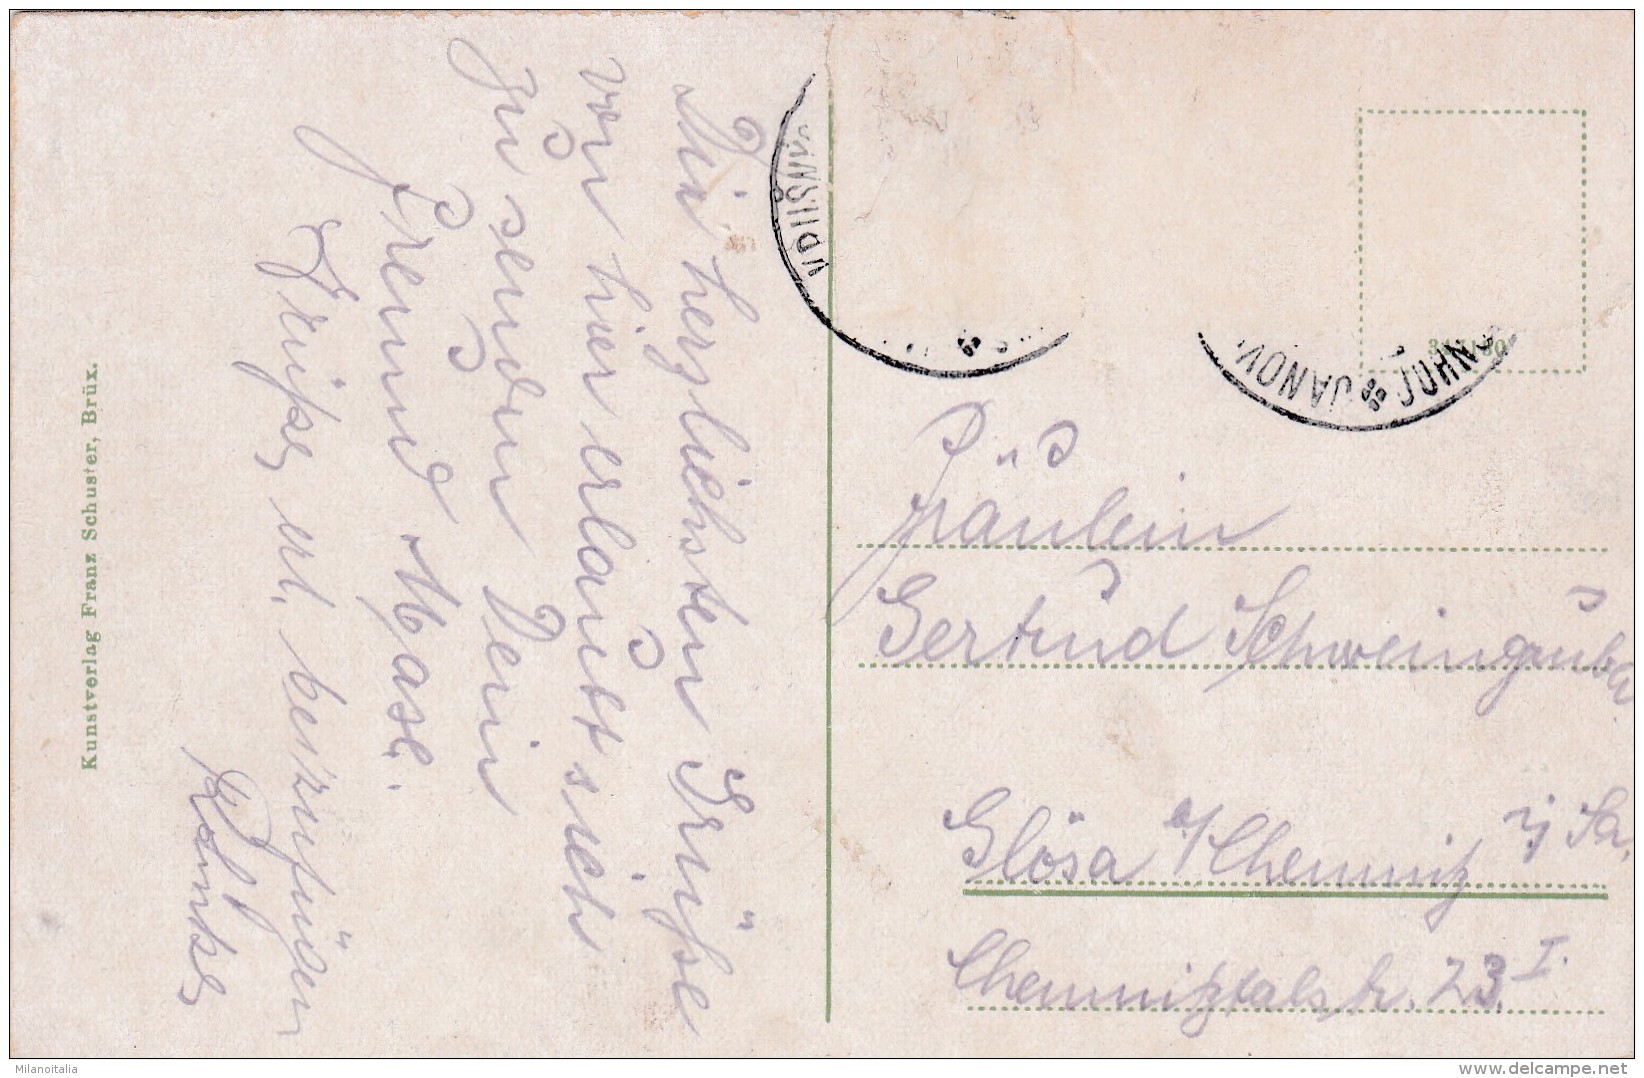 Dir herzliebsten Grüße
von hier erlaubt sich
zu senden Dein
Freund Max.
Grüße erl. beizufügen
Fräulein
Gertrud Schweingruber
Glösa a/Chemnitz i/Sa.
Chemnitztalstr. 23 I.
JOHN
JANOV
Kunstverlag Franz Schuster, Brüx.
Milanoitalia
delcampe.net